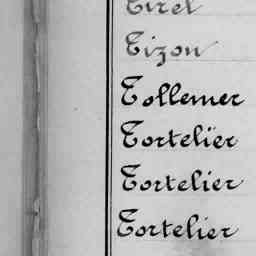 Tirel
Tizon
Tollemer
Tortelier
Tortelier
Tortelier